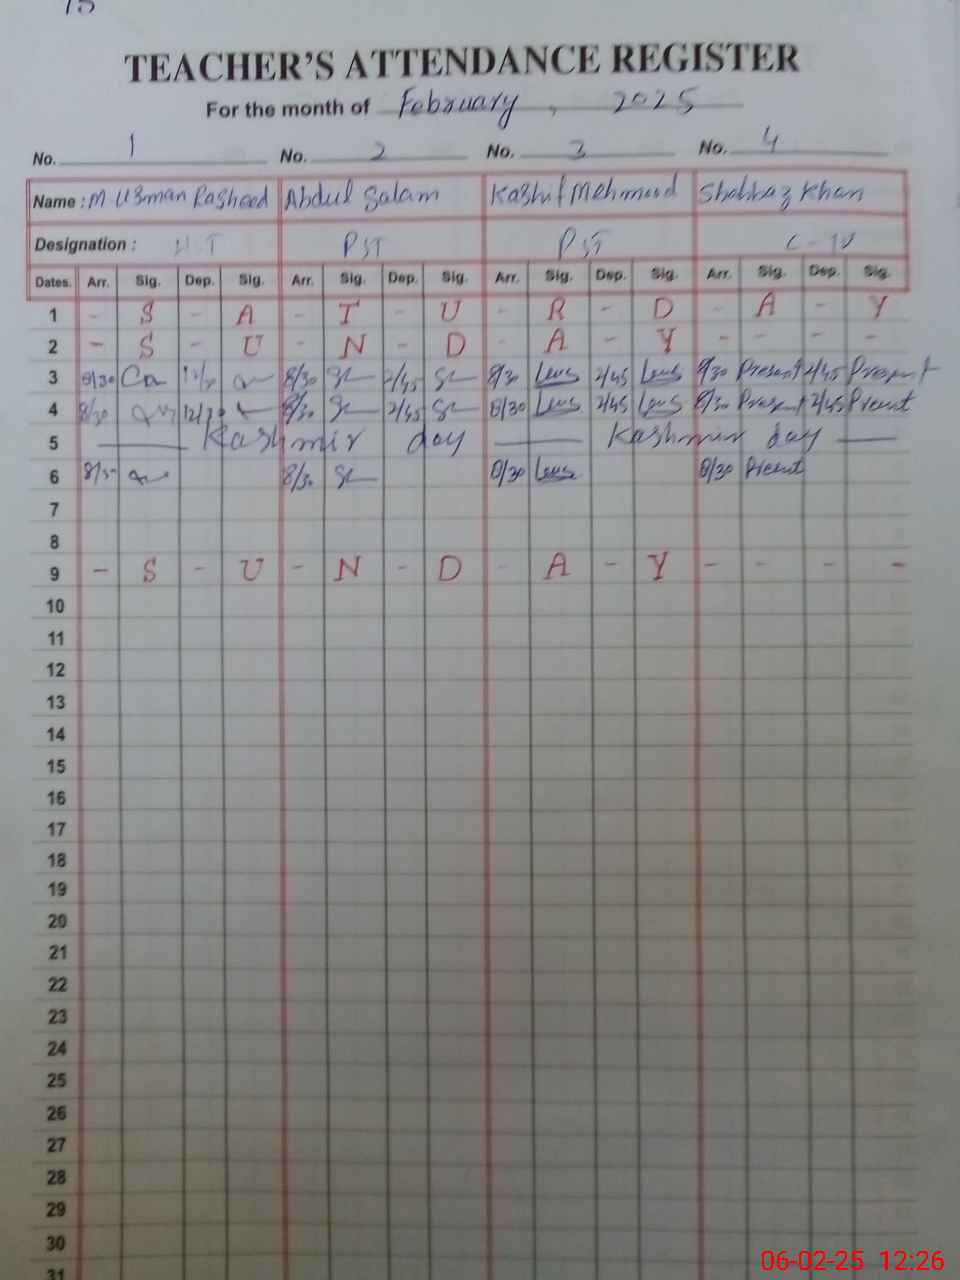 15
TEACHER'S ATTENDANCE REGISTER
For the month of February, 2025
No. 1 No. 2 No. 3 No. 4
Name : M Usman Rasheed Abdul Salam Kashif Mehmood Shahbaz Khan
Designation : H.T PST PST C-IV
Dates. Arr. Sig. Dep. Sig. Arr. Sig. Dep. Sig. Arr. Sig. Dep. Sig. Arr. Sig. Dep. Sig.
1 - S - A - T - U - R - D - A - Y
2 - S - U - N - D - A - Y - - - -
3 8/30 8/30 2/45 8/30 2/45 8/30 Present 2/45 Present
4 8/30 12/30 8/30 2/45 8/30 2/45 8/30 Present 2/45 Present
5 Kashmir day Kashmir day
6 8/30 8/30 8/30 Present
7
8
9 - S - U - N - D - A - Y - - - -
10
11
12
13
14
15
16
17
18
19
20
21
22
23
24
25
26
27
28
29
30
31
06-02-25 12:26